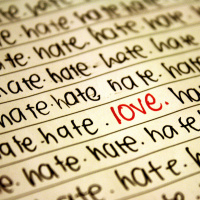 hate. hate. hate.
hate. hate. hate. hate.
hate. hate. hate. hate.
hate. hate. hate. hate.
hate. hate. hate. hate.
hate. love. hate.
hate. hate. hate.
hate. hate.